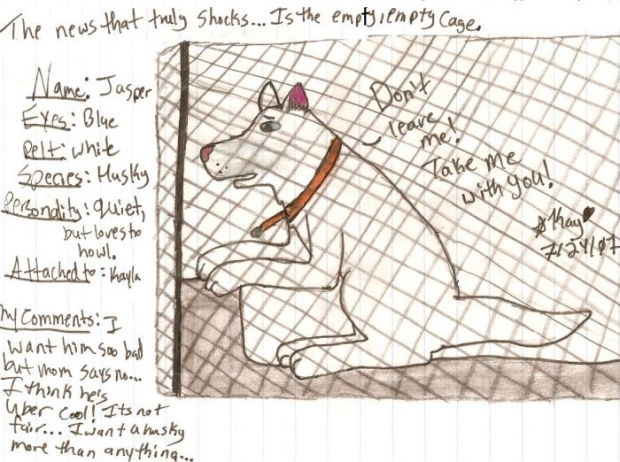 The news that truly shocks... Is the empty, empty cage.
Name: Jasper
Eyes: Blue
Pelt: white
Species: Husky
Personality: Quiet,
but loves to
howl.
Attached to: Kayla
My Comments: I
want him soo bad
but mom says no...
I think he's
Uber Cool! Its not
fair... I want a husky
more than anything...
Don't
leave
me!
Take me
with you!
7/24/07